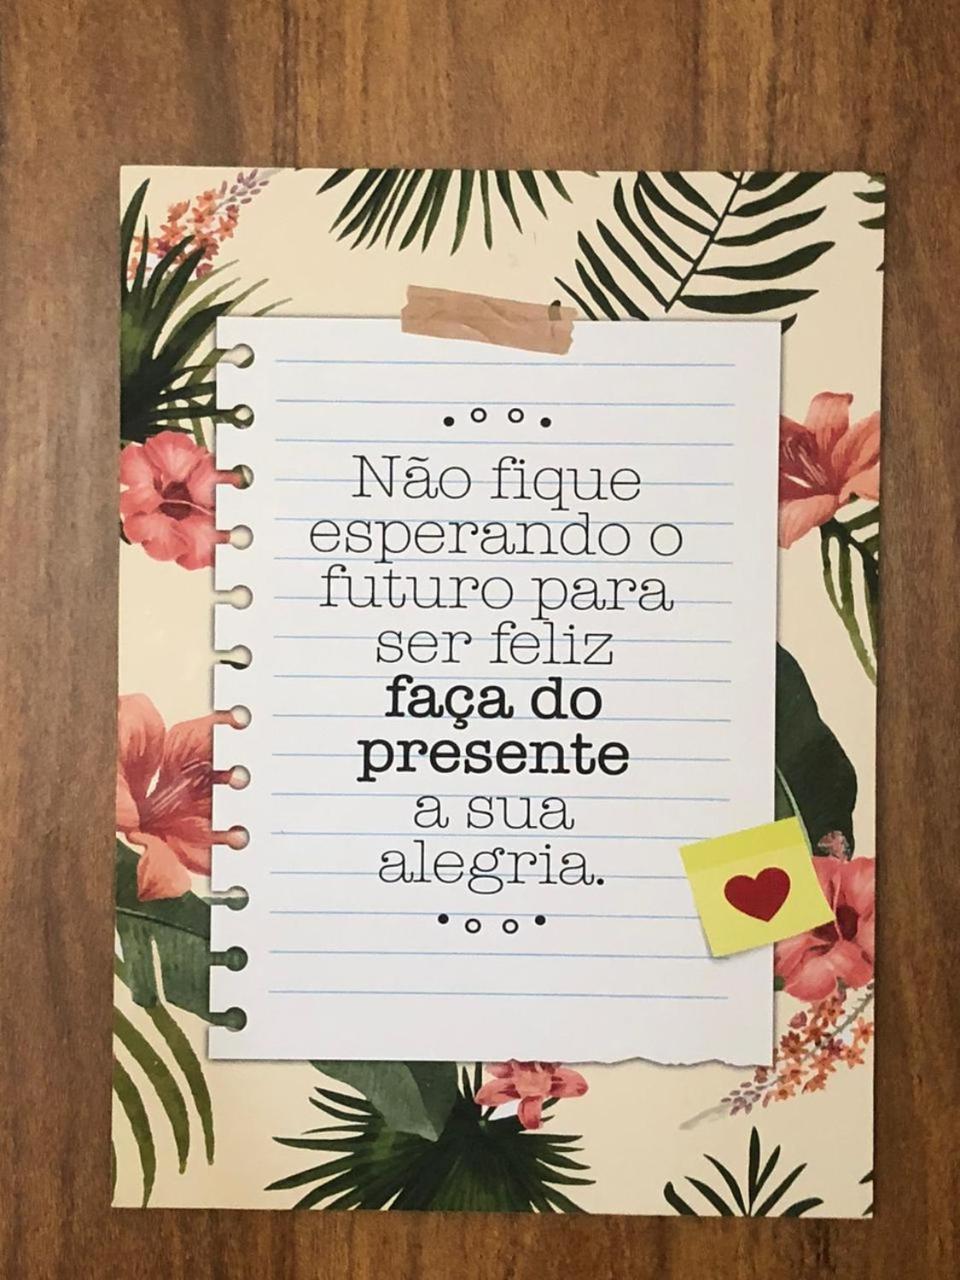 Não fique
esperando o
futuro para
ser feliz
faça do
presente
a sua
alegria.